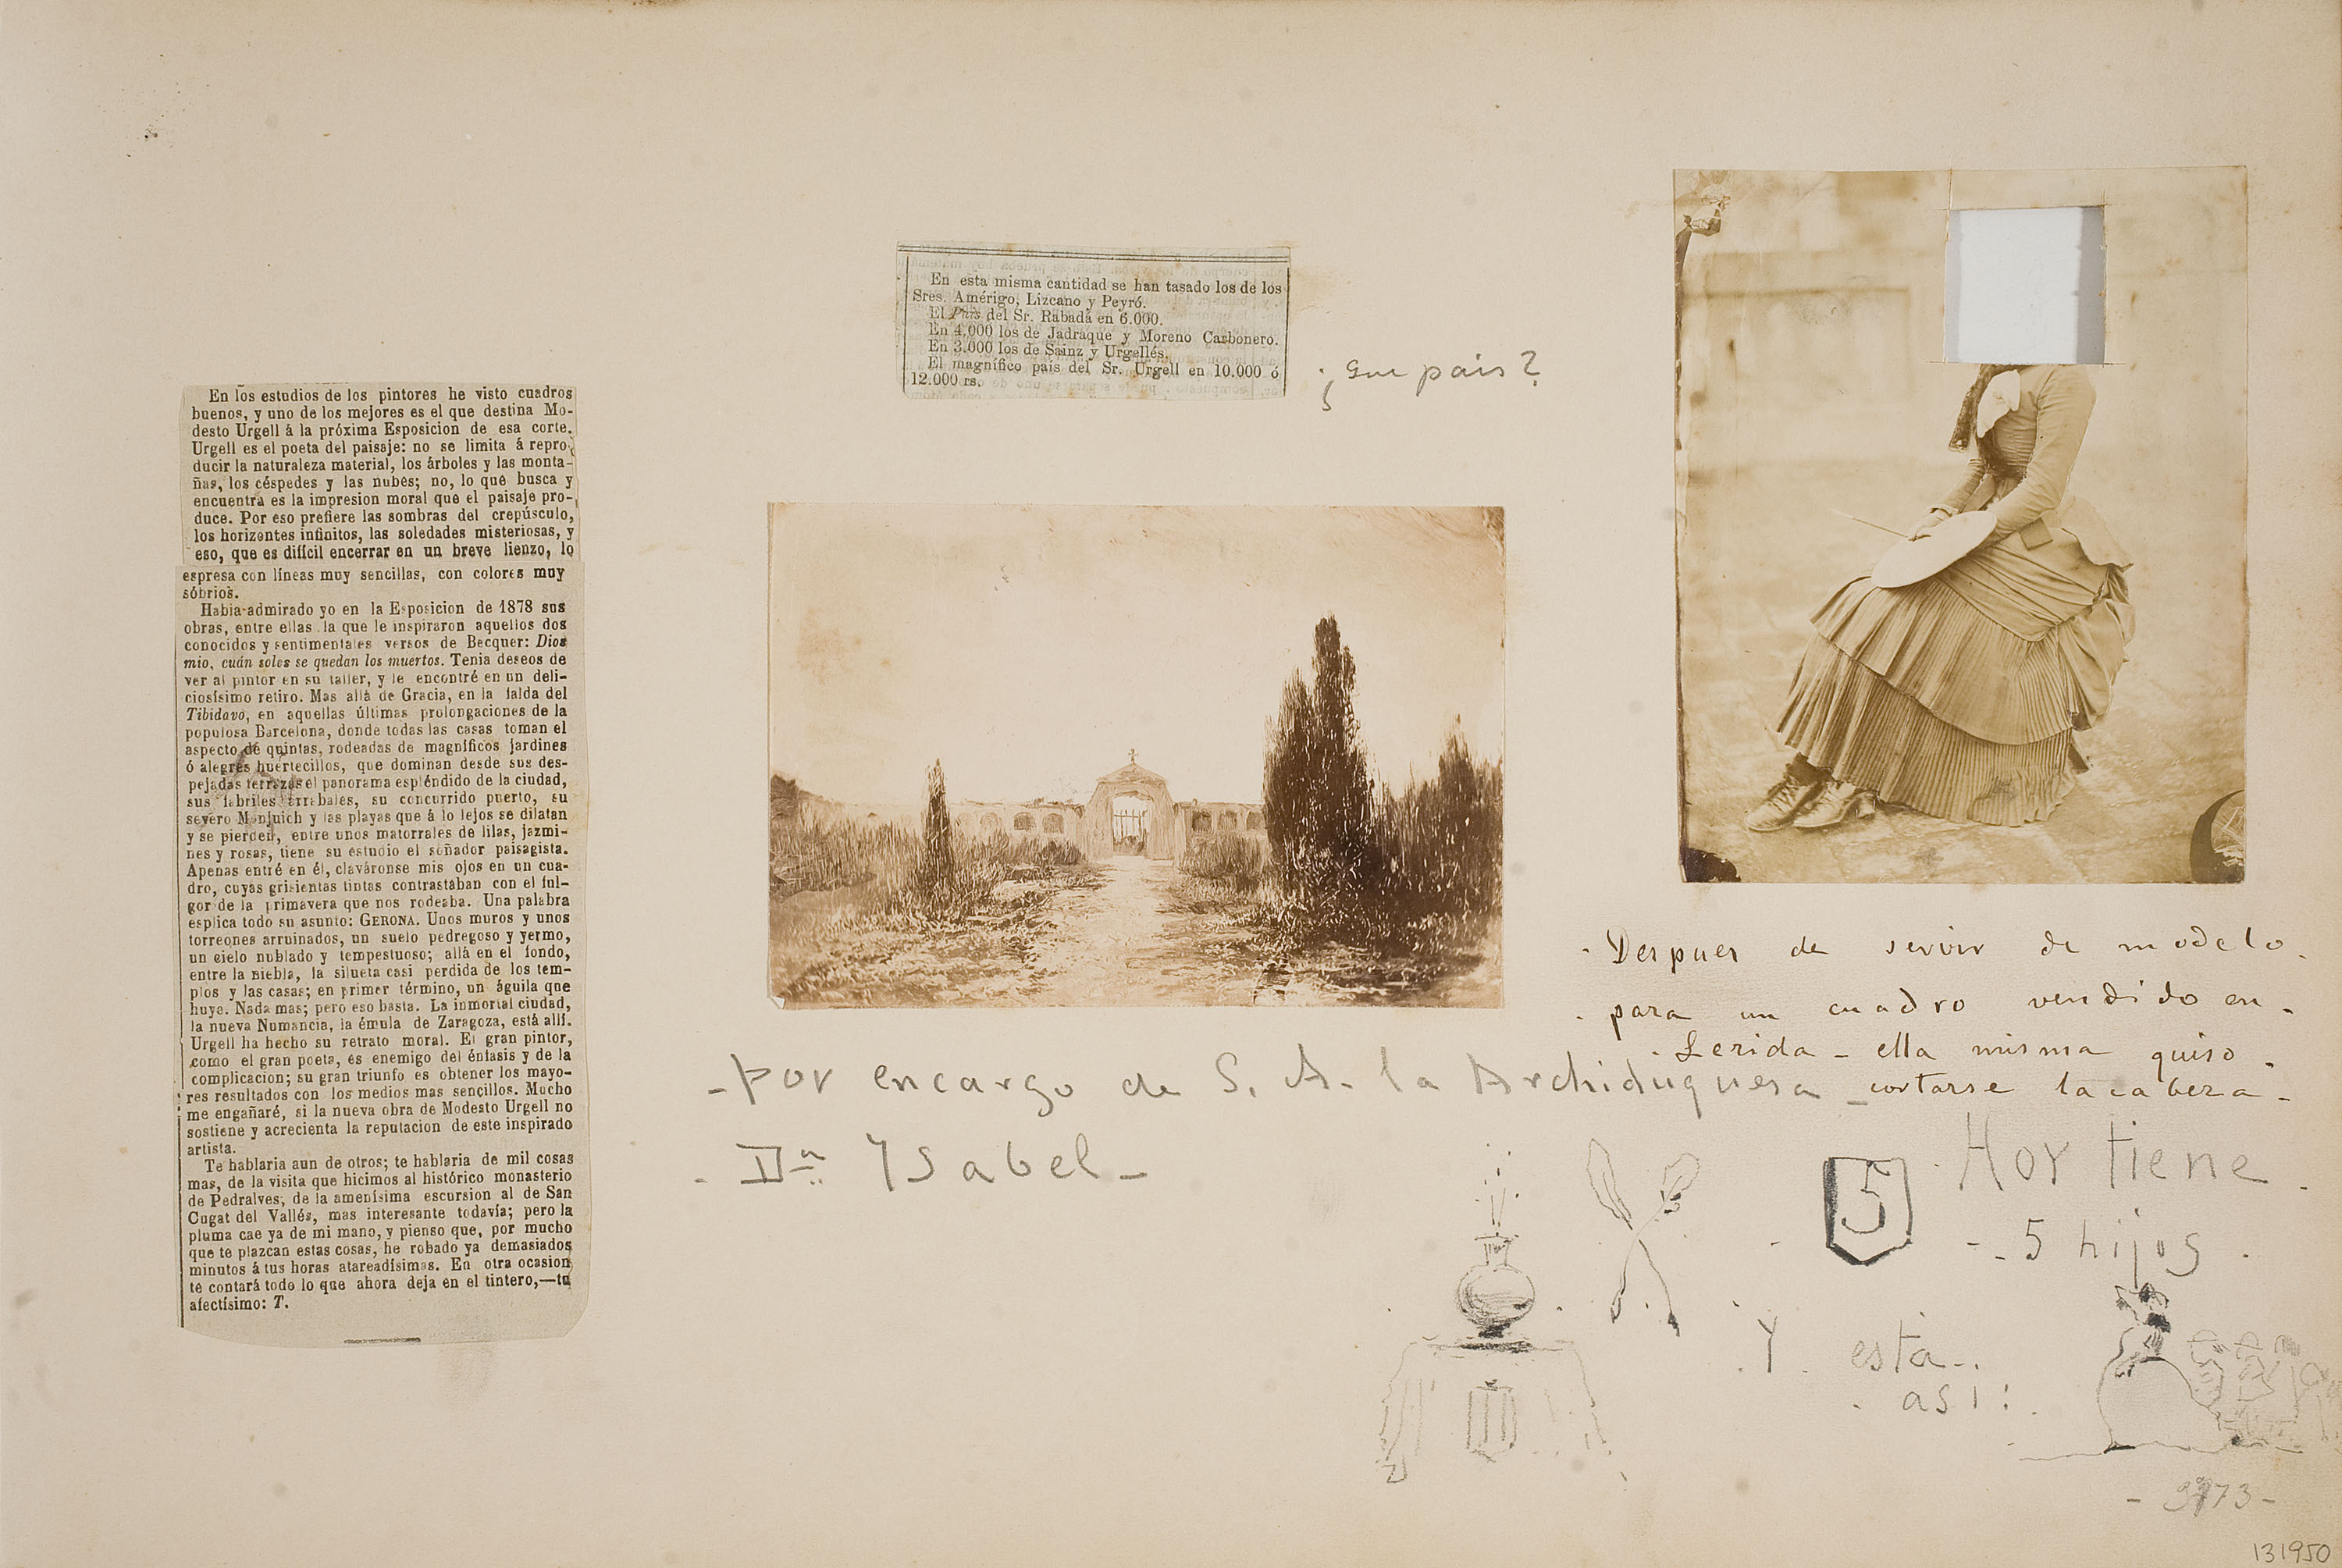 En los estudios de los pintores he visto cuadros
buenos, y uno de los mejores es el que destina Mo-
desto Urgell á la próxima Esposicion de esa corte.
Urgell es el poeta del paisaje: no se limita á repro-
ducir la naturaleza material, los árboles y las monta-
ñas, los céspedes y las nubes; no, lo que busca y
encuentra es la impresion moral que el paisaje pro-
duce. Por eso prefiere las sombras del crepúsculo,
los horizontes infinitos, las soledades misteriosas, y
eso, que es difícil encerrar en un breve lienzo, lo
espresa con líneas muy sencillas, con colores muy
sóbrios.
Habia admirado yo en la Esposicion de 1878 sus
obras, entre ellas la que le inspiraron aquellos dos
conocidos y sentimentales versos de Becquer: Dios
mio, cuán solos se quedan los muertos. Tenia deseos de
ver al pintor en su taller, y le encontré en un deli-
ciosísimo retiro. Mas allá de Gracia, en la falda del
Tibidavo, en aquellas últimas prolongaciones de la
populosa Barcelona, donde todas las casas toman el
aspecto de quintas, rodeadas de magníficos jardines
ó alegres huertecillos, que dominan desde sus des-
pejadas terrazas el panorama espléndido de la ciudad,
sus fabriles arrabales, su concurrido puerto, su
severo Monjuich y las playas que á lo lejos se dilatan
y se pierden, entre unos matorrales de lilas, jazmi-
nes y rosas, tiene su estudio el soñador paisagista.
Apenas entré en él, claváronse mis ojos en un cua-
dro, cuyas grisientas tintas contrastaban con el ful-
gor de la primavera que nos rodeaba. Una palabra
esplica todo su asunto: GERONA. Unos muros y unos
torreones arruinados, un suelo pedregoso y yermo,
un cielo nublado y tempestuoso; allá en el fondo,
entre la niebla, la silueta casi perdida de los tem-
plos y las casas; en primer término, un águila que
huye. Nada mas; pero eso basta. La inmortal ciudad,
la nueva Numancia, la émula de Zaragoza, está allí.
Urgell ha hecho su retrato moral. El gran pintor,
como el gran poeta, es enemigo del énfasis y de la
complicacion; su gran triunfo es obtener los mayo-
res resultados con los medios mas sencillos. Mucho
me engañaré, si la nueva obra de Modesto Urgell no
sostiene y acrecienta la reputacion de este inspirado
artista.
Te hablaria aun de otros; te hablaria de mil cosas
mas, de la visita que hicimos al histórico monasterio
de Pedralves, de la amenísima escursion al de San
Cugat del Vallés, mas interesante todavía; pero la
pluma cae ya de mi mano, y pienso que, por mucho
que te plazcan estas cosas, he robado ya demasiados
minutos á tus horas atareadísimas. En otra ocasion
te contará todo lo que ahora deja en el tintero,—tu
afectísimo: T.
En esta misma cantidad se han tasado los de los
Sres. Amérigo, Lizcano y Peyró.
El País del Sr. Rabadá en 6.000.
En 4.000 los de Jadraque y Moreno Carbonero.
En 3.000 los de Sainz y Urgellés.
El magnífico país del Sr. Urgell en 10.000 ó
12.000 rs.
¿Que pais?
- por encargo de S. A. la Archiduquesa
- Dª Ysabel -
Despues de servir de modelo
para un cuadro vendido en
Lerida - ella misma quiso
cortarse la cabeza -
5
Hoy tiene
5 hijos
Y esta
asi:
131950